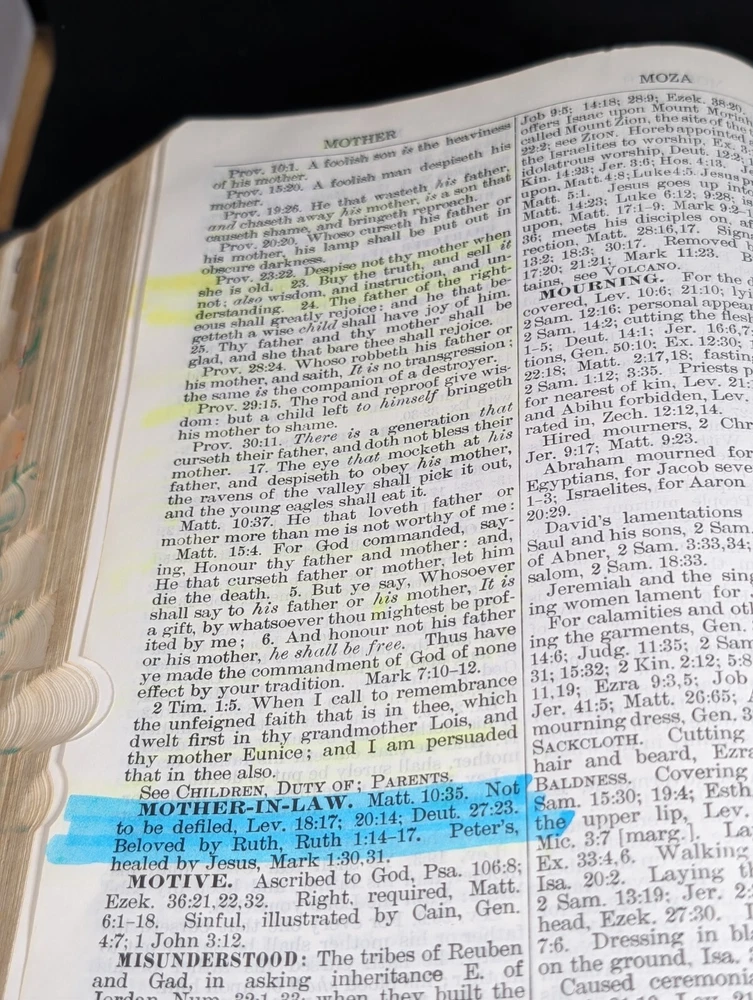 MOTHER
Prov. 10:1. A foolish son is the heaviness
of his mother.
Prov. 15:20. A foolish man despiseth his
mother.
Prov. 19:26. He that wasteth his father,
and chaseth away his mother, is a son that
causeth shame, and bringeth reproach.
Prov. 20:20. Whoso curseth his father or
his mother, his lamp shall be put out in
obscure darkness.
Prov. 23:22. Despise not thy mother when
she is old. 23. Buy the truth, and sell it
not; also wisdom, and instruction, and un-
derstanding. 24. The father of the right-
eous shall greatly rejoice: and he that be-
getteth a wise child shall have joy of him.
25. Thy father and thy mother shall be
glad, and she that bare thee shall rejoice.
Prov. 28:24. Whoso robbeth his father or
his mother, and saith, It is no transgression;
the same is the companion of a destroyer.
Prov. 29:15. The rod and reproof give wis-
dom: but a child left to himself bringeth
his mother to shame.
Prov. 30:11. There is a generation that
curseth their father, and doth not bless their
mother. 17. The eye that mocketh at his
father, and despiseth to obey his mother,
the ravens of the valley shall pick it out,
and the young eagles shall eat it.
Matt. 10:37. He that loveth father or
mother more than me is not worthy of me:
Matt. 15:4. For God commanded, say-
ing, Honour thy father and mother: and,
He that curseth father or mother, let him
die the death. 5. But ye say, Whosoever
shall say to his father or his mother, It is
a gift, by whatsoever thou mightest be prof-
ited by me; 6. And honour not his father
or his mother, he shall be free. Thus have
ye made the commandment of God of none
effect by your tradition. Mark 7:10–12.
2 Tim. 1:5. When I call to remembrance
the unfeigned faith that is in thee, which
dwelt first in thy grandmother Lois, and
thy mother Eunice; and I am persuaded
that in thee also.
See CHILDREN, DUTY OF; PARENTS.
MOTHER-IN-LAW. Matt. 10:35. Not
to be defiled, Lev. 18:17; 20:14; Deut. 27:23.
Beloved by Ruth, Ruth 1:14–17. Peter's,
healed by Jesus, Mark 1:30,31.
MOTIVE. Ascribed to God, Psa. 106:8;
Ezek. 36:21,22,32. Right, required, Matt.
6:1–18. Sinful, illustrated by Cain, Gen.
4:7; 1 John 3:12.
MISUNDERSTOOD: The tribes of Reuben
and Gad, in asking inheritance E. of
Jordan, Num. when they built the
MOZA
Job 9:5; 14:18; 28:9; Ezek. 38:20.
offers Isaac upon Mount Moriah
called Mount Zion, the site of
22:2; see ZION. Horeb appointed
the Israelites to worship, Ex. 3:
idolatrous worship, Deut. 12:2
Kin. 14:23; Jer. 3:6; Hos. 4:13.
upon, Matt. 4:8; Luke 4:5. Jesus
Matt. 5:1. Jesus goes up
Matt. 14:23; Luke 6:12; 9:28;
upon, Matt. 17:1–9; Mark 9:2
36; meets his disciples on,
rection, Matt. 28:16,17.
13:2; 18:3; 30:17. Removed
17:20; 21:21; Mark 11:23.
tains, see VOLCANO.
MOURNING. For the
covered, Lev. 10:6; 21:10;
2 Sam. 12:16; personal
2 Sam. 14:2; cutting the
1–5; Deut. 14:1; Jer. 16:6,7
tions, Gen. 50:10; Ex. 12:30;
22:18; Matt. 2:17,18;
2 Sam. 1:12; 3:35. Priests
for nearest of kin, Lev. 21:
and Abihu forbidden, Lev.
rated in, Zech. 12:12,14.
Hired mourners, 2 Chr
Jer. 9:17; Matt. 9:23.
Abraham mourned for
Egyptians, for Jacob
1–3; Israelites, for Aaron
20:29.
David's lamentations
Saul and his sons, 2 Sam.
of Abner, 2 Sam. 3:33,34;
salom, 2 Sam. 18:33.
Jeremiah and the
ing women lament for
For calamities and
ing the garments, Gen.
14:6; Judg. 11:35; 2 Sam
31; 15:32; 2 Kin. 2:12; 5:8
11,19; Ezra 9:3,5; Job
Jer. 41:5; Matt. 26:65;
mourning dress, Gen. 3
SACKCLOTH. Cutting
hair and beard, Ezra
BALDNESS. Covering
Sam. 15:30; 19:4; Esth
the upper lip, Lev.
Mic. 3:7 [marg.].
Ex. 33:4,6. Walking
Isa. 20:2. Laying
2 Sam. 13:19; Jer. 2:
head, Ezek. 27:30.
7:6. Dressing in
on the ground, Isa.
Caused